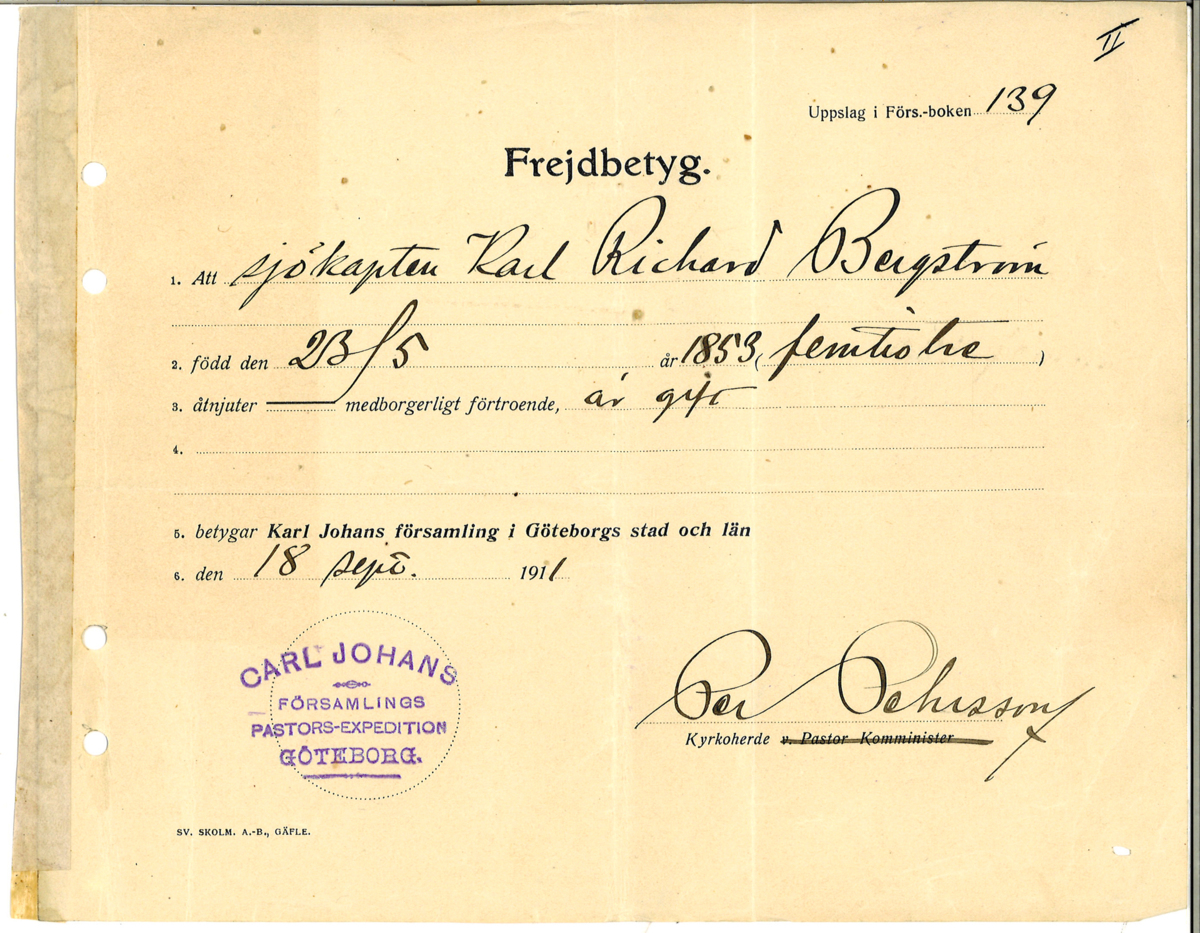 II
Uppslag i Förs.-boken 139
Frejdbetyg.
1. Att sjökapten Karl Richard Bergström
2. född den 23/5 år 1853 (femtiotre)
3. åtnjuter medborgerligt förtroende, är gift
4.
5. betygar Karl Johans församling i Göteborgs stad och län
6. den 18 sept. 1911
CARL JOHANS
FÖRSAMLINGS
PASTORS-EXPEDITION
GÖTEBORG.
Per Pehrsson
Kyrkoherde v. Pastor Komminister
SV. SKOLM. A.-B., GÄFLE.